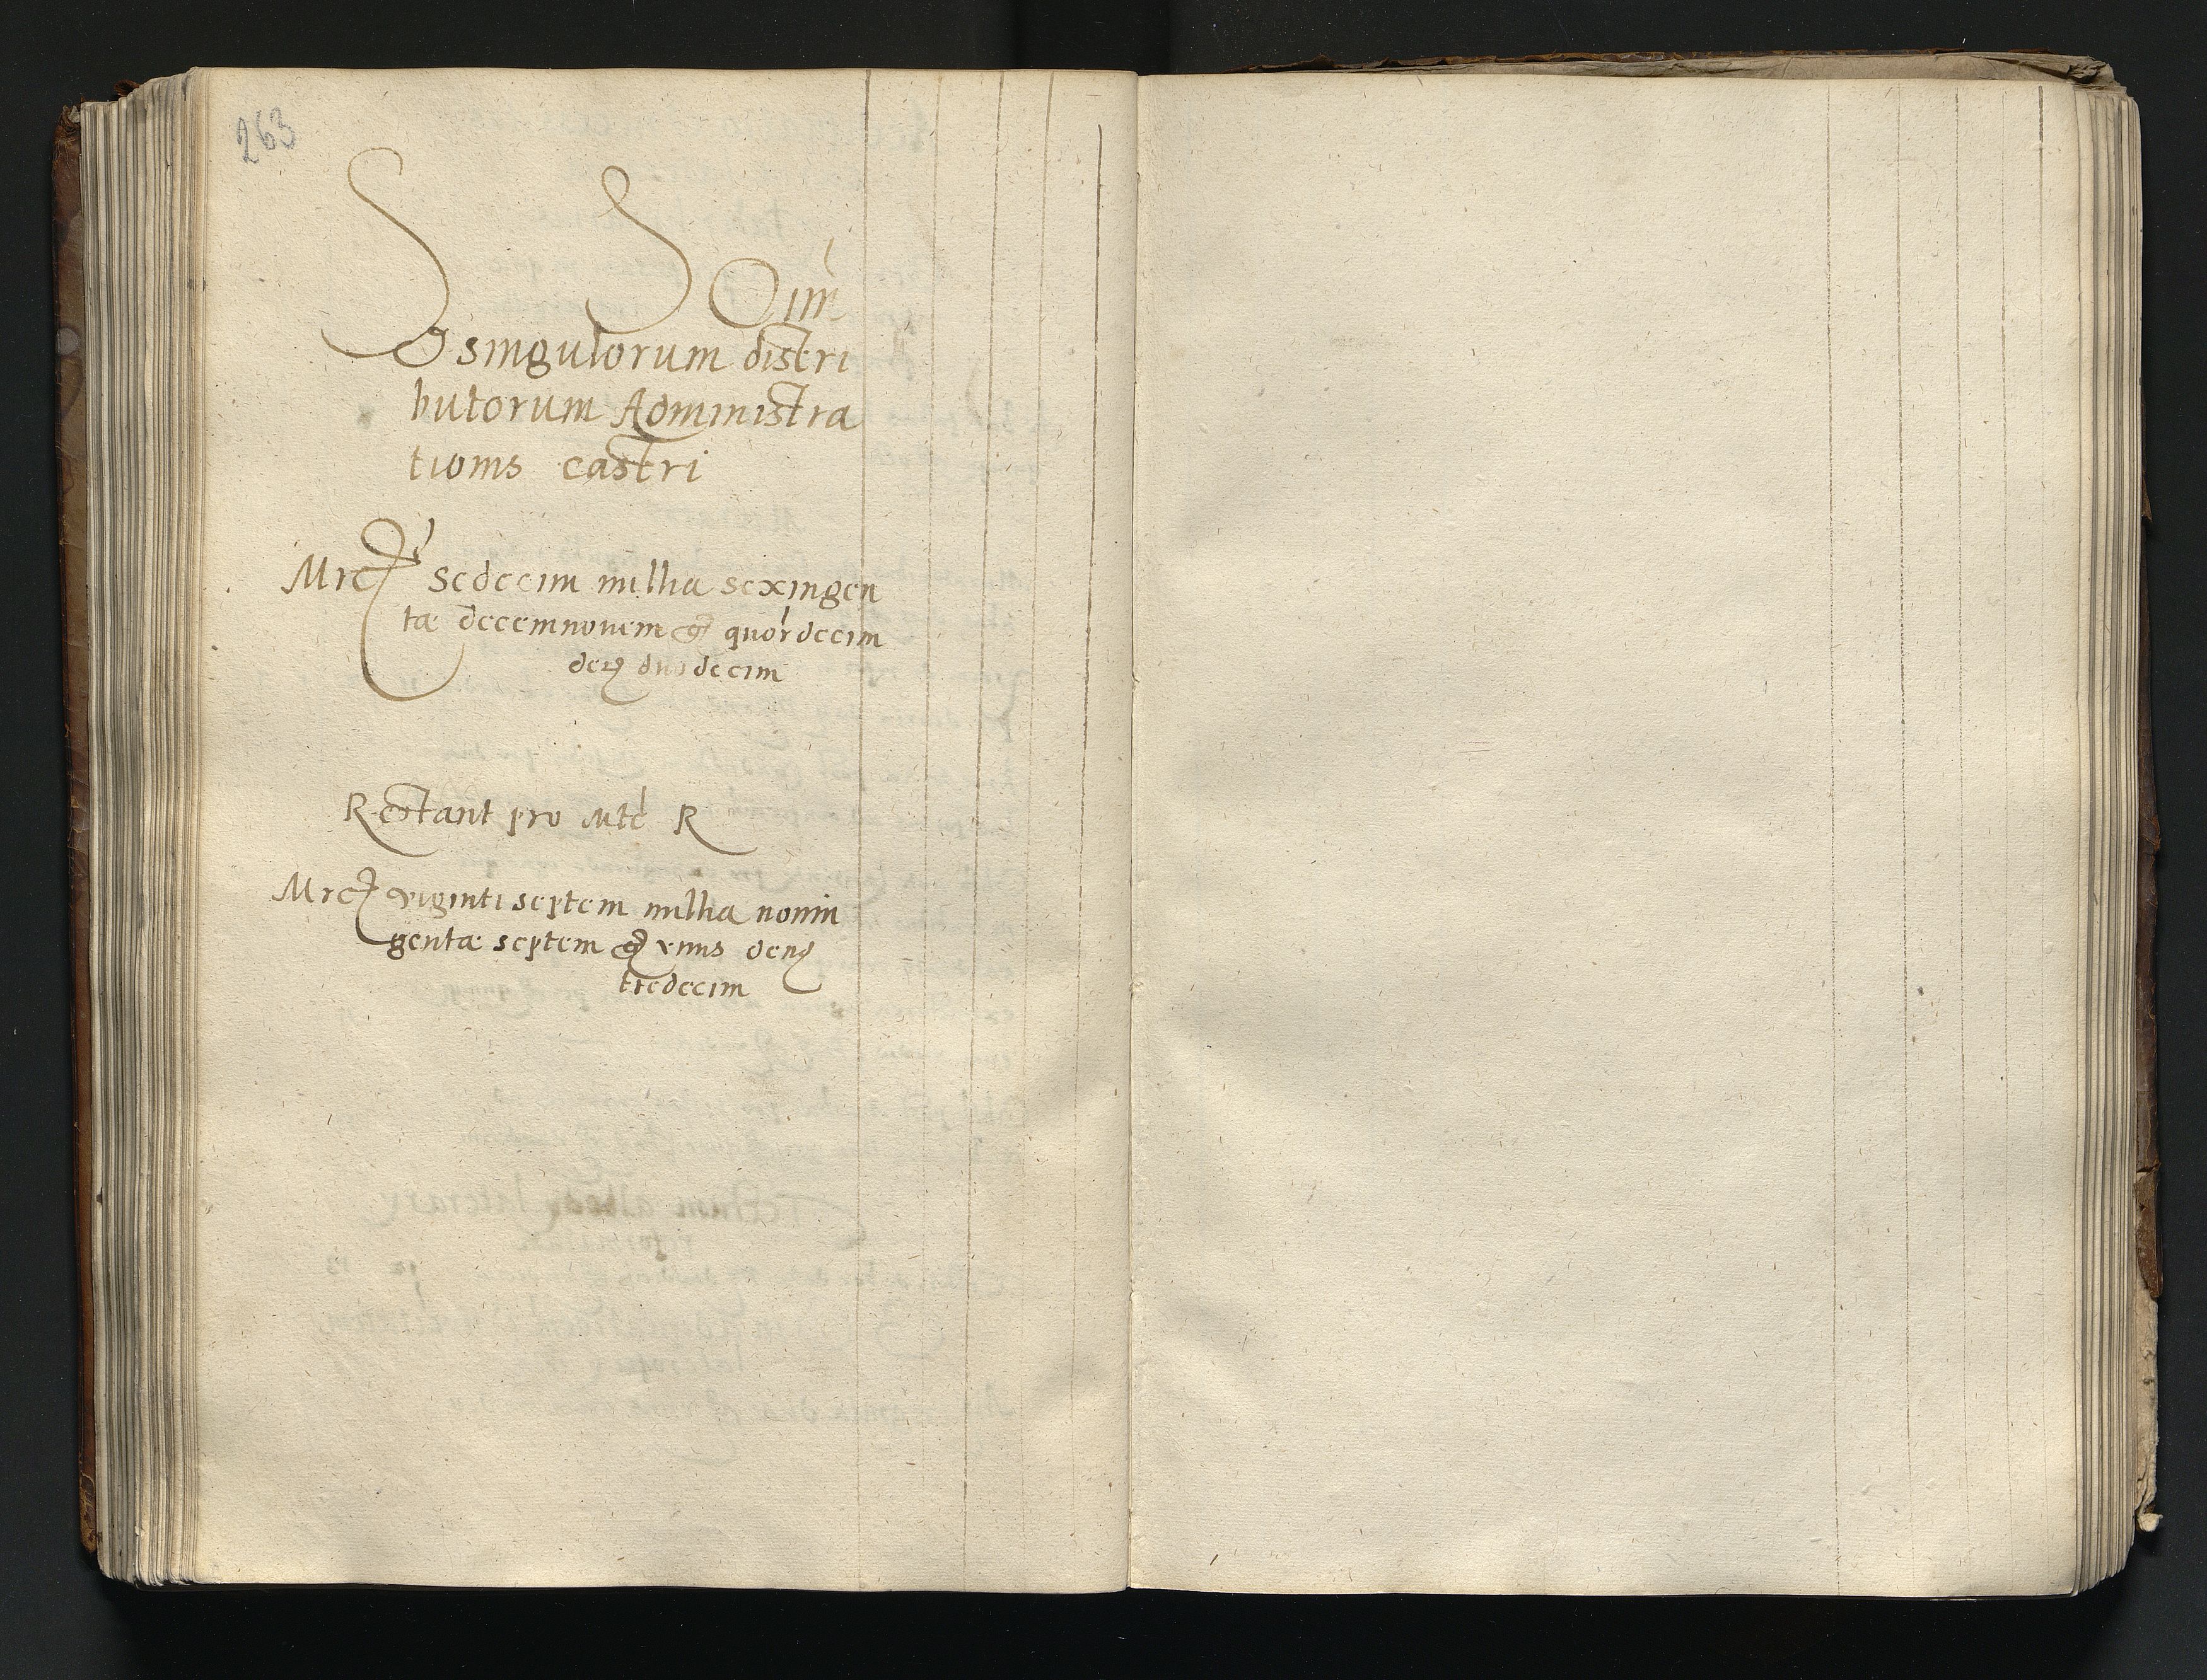 263
S S Oim
singulorum distri
butorum Administra
tionis castri
Mrc sedecim millia sexingen
tæ decemnovem gr quordecim
den duodecim
Restant pro Mte R
Mrc viginti septem millia nonin
gentæ septem gr vnus den
tredecim